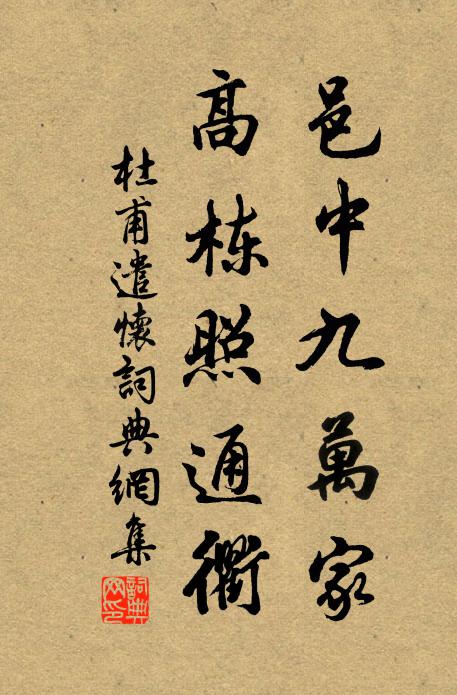 邑中九萬家
高栋照通衢
杜甫遣懷詞典網集
詞典网印